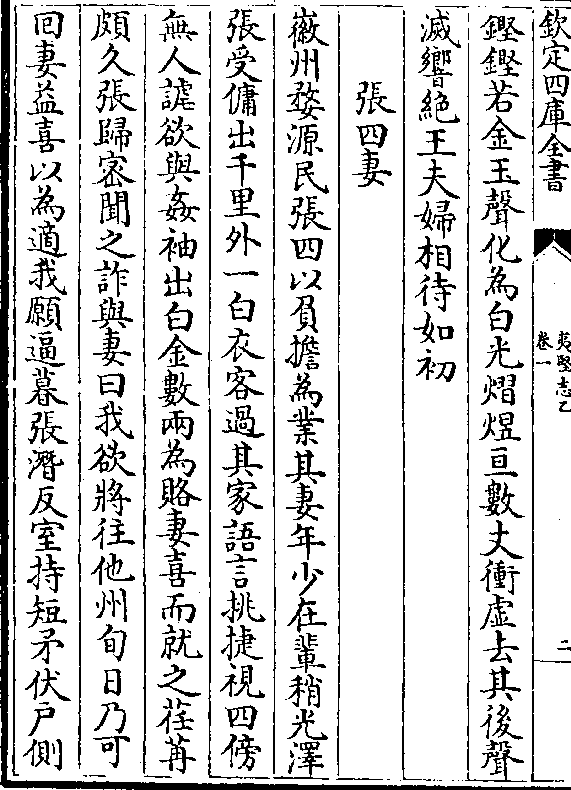 欽定四庫全書
夷堅志乙
卷一
二
鏗鏗若金玉聲化為白光熠煜亘數丈衝虛去其後聲
滅響絕王夫婦相待如初
張四妻
徽州婺源民張四以負擔為業其妻年少在輩稍光澤
張受傭出千里外一白衣客過其家語言挑捷視四傍
無人謔欲與姦袖出白金數兩為賂妻喜而就之荏苒
頗久張歸宻聞之詐與妻曰我欲將往他州旬日乃可
回妻益喜以為適我願逼暮張潛反室持短矛伏戶側